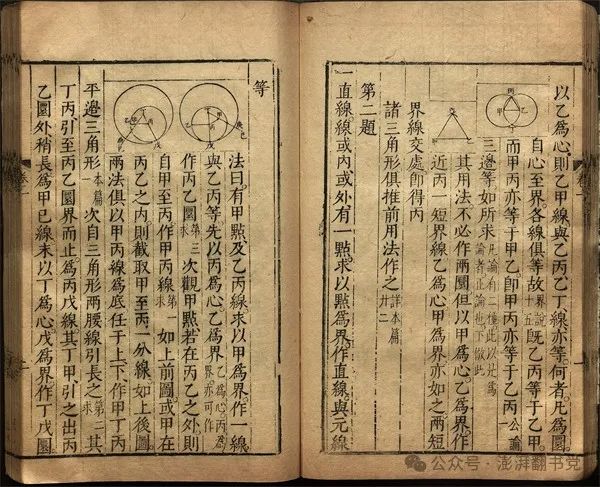 以乙爲心則乙甲線與乙丙乙丁線亦等何者凡爲圜
自心至界各線俱等故界說十五旣乙丙等于乙甲
而甲丙亦等于甲乙卽甲丙亦等于乙丙公論一
三邊等如所求凡論有二種此以是爲論者正論也下倣此
其用法不必作兩圜但以甲爲心乙爲界作
近丙一短界線乙爲心甲爲界亦如之兩短
界線交處卽得丙
諸三角形俱推前用法作之詳本篇廿二
第二題
一直線線或內或外有一點求以點爲界作直線與元線
等
法曰有甲點及乙丙線求以甲爲界作一線
與乙丙等先以丙爲心乙爲界乙爲心丙爲界亦可作
作丙乙圜第三求次觀甲點若在丙乙之外則
自甲至丙作甲丙線第一求如上前圖或甲在
丙乙之內則截取甲至丙一分線如上後圖
兩法俱以甲丙線爲底任于上下作甲丁丙
平邊三角形本篇一次自三角形兩腰線引長之第二求其
丁丙引至丙乙圜界而止爲丙戊線其丁甲引之出丙
乙圜外稍長爲甲己線末以丁爲心戊爲界作丁戊圜
公众号·澎湃翻书党